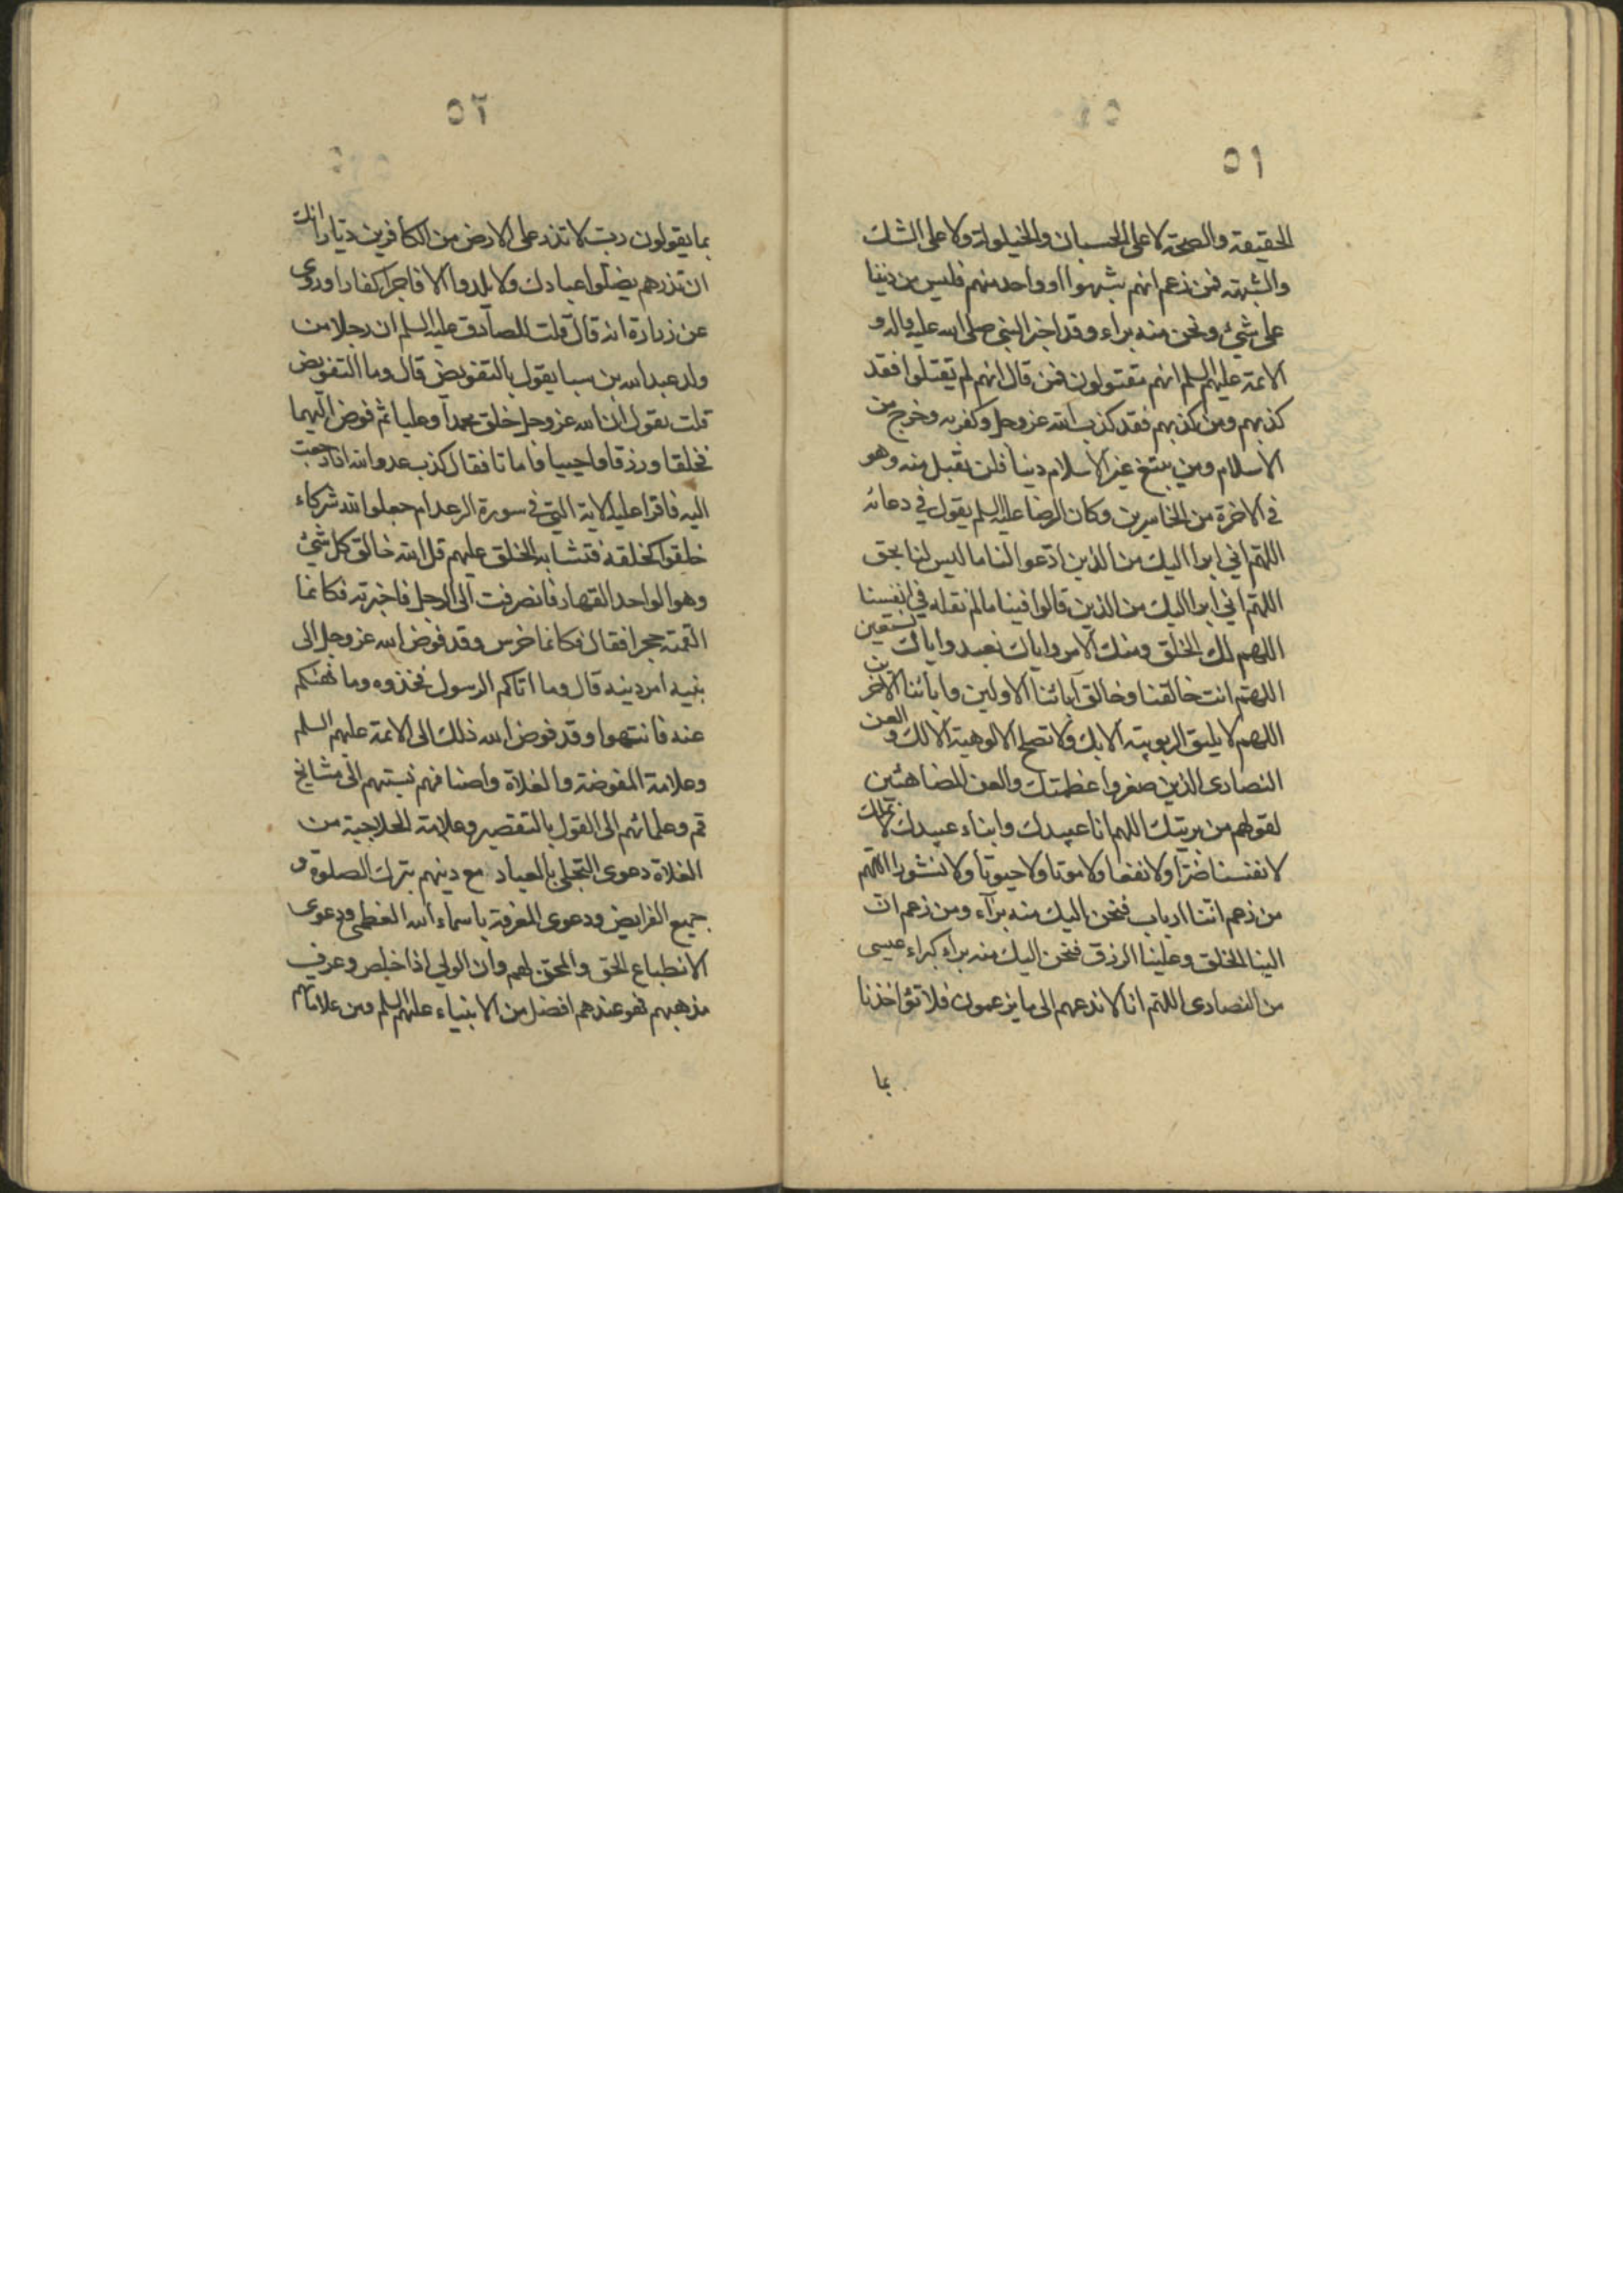 ٥١
الحقيقة والصحة لا على الحسبان والخيلولة ولا على الشك
والشبهة فمن زعم انهم شبهوا او واحد منهم فليس من ديننا
على شيئ ونحن منه براء وقد اخبر النبي صلى الله عليه واله و
الائمة عليهم السلم انهم مقتولون فمن قال انهم لم يقتلوا فقد
كذبهم ومن كذبهم فقد كذب الله عز وجل وكفر به وخرج من
الاسلام ومن يبتغ غير الاسلام دينا فلن يقبل منه وهو
في الاخرة من الخاسرين وكان الرضا عليه السلم يقول في دعائه
اللهم اني ابرا اليك من الذين ادعوا لنا ما ليس لنا بحق
اللهم اني ابرا اليك من الذين قالوا فينا ما لم نقله في انفسنا
اللهم لك الخلق ومنك الامر واياك نعبد واياك نستعين
اللهم انت خالقنا وخالق آبائنا الاولين وابائنا الاخرين
اللهم لا يليق الربوبية الا بك ولا تصلح الالوهية الا لك والعن
النصارى الذين صغروا عظمتك والعن المضاهئين
لقولهم من بريتك اللهم انا عبيدك وابناء عبيدك لا نملك
لانفسنا ضرا ولا نفعا ولا موتا ولا حيوتا ولا نشورا اللهم
من زعم اننا ارباب فنحن اليك منه برآء ومن زعم ان
الينا الخلق وعلينا الرزق فنحن اليك منه براء كبراء عيسى
من النصارى اللهم انا لا ندعهم الى ما يزعمون فلا تؤاخذنا
بما
٥٢
بما يقولون رب لا تذر على الارض من الكافرين ديارا انك
ان تذرهم يضلوا عبادك ولا يلدوا الا فاجرا كفارا وروى
عن زرارة انه قال قلت للصادق عليه السلم ان رجلا من
ولد عبد الله بن سبا يقول بالتفويض قال وما التفويض
قلت يقول ان الله عز وجل خلق محمدا وعليا ثم فوض اليهما
فخلقا ورزقا واحييا واماتا فقال كذب عدو الله اذا رجعت
اليه فاقرا عليه الاية التي في سورة الرعد ام جعلوا لله شركاء
خلقوا كخلقه فتشابه الخلق عليهم قل الله خالق كل شيئ
وهو الواحد القهار فانصرفت الى الرجل فاخبرته فكانما
القمته حجرا فقال فكانما خرس وقد فوض الله عز وجل الى
نبيه امر دينه قال وما اتاكم الرسول فخذوه وما نهيكم
عنه فانتهوا وقد فوض الله ذلك الى الائمة عليهم السلم
وعلامة المفوضة والغلاة واصنافهم نسبتهم الى مشايخ
قم وعلمائهم الى القول بالتقصير وعلامة الحلاجية من
الغلاة دعوى التجلي بالعباد مع دينهم بترك الصلوة و
جميع الفرايض ودعوى المعرفة باسماء الله العظمى ودعوى
الانطباع الحق والمحق لهم وان الولي اذا خلص وعرف
مذهبهم فهو عندهم افضل من الانبياء عليهم السلم ومن علاماتهم